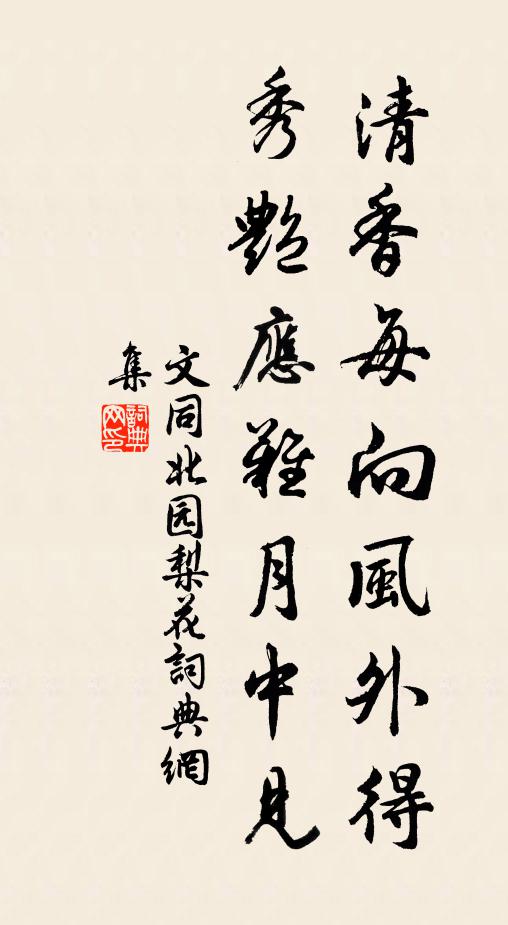 清香每向風外得
秀艷應難月中見
文同北园梨花詞典網
集
詞典网印